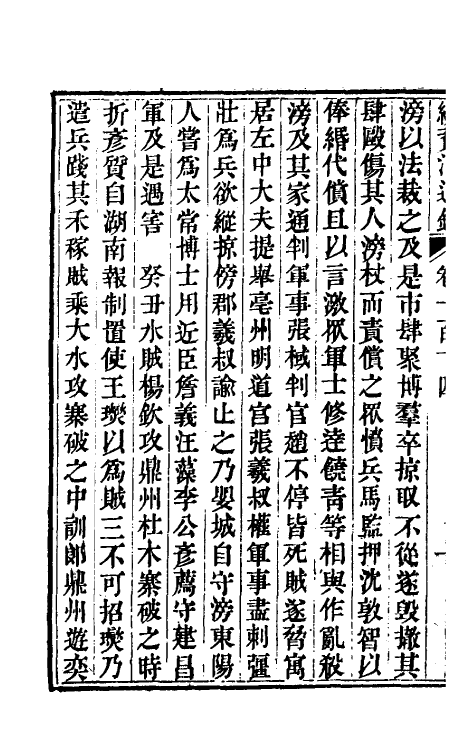 續資治通鑑 卷一百十四
滂以法裁之及是市肆聚博羣卒掠取不從遂毀撤其
肆毆傷其人滂杖而責償之眾憤兵馬監押沈敦智以
俸緡代償且以言激眾軍士修達饒靑等相與作亂殺
滂及其家通判軍事張棫判官趙不停皆死賊遂脅寓
居左中大夫提舉亳州明道宮張羲叔權軍事盡刺彊
壯爲兵欲縱掠傍郡羲叔諭止之乃嬰城自守滂東陽
人嘗爲太常博士用近臣詹義汪藻李公彥薦守建昌
軍及是遇害 癸丑水賊楊欽攻鼎州杜木寨破之時
折彥質自湖南報制置使王𤫉以爲賊三不可招𤫉乃
遣兵踐其禾稼賊乘大水攻寨破之中訓郎鼎州遊奕